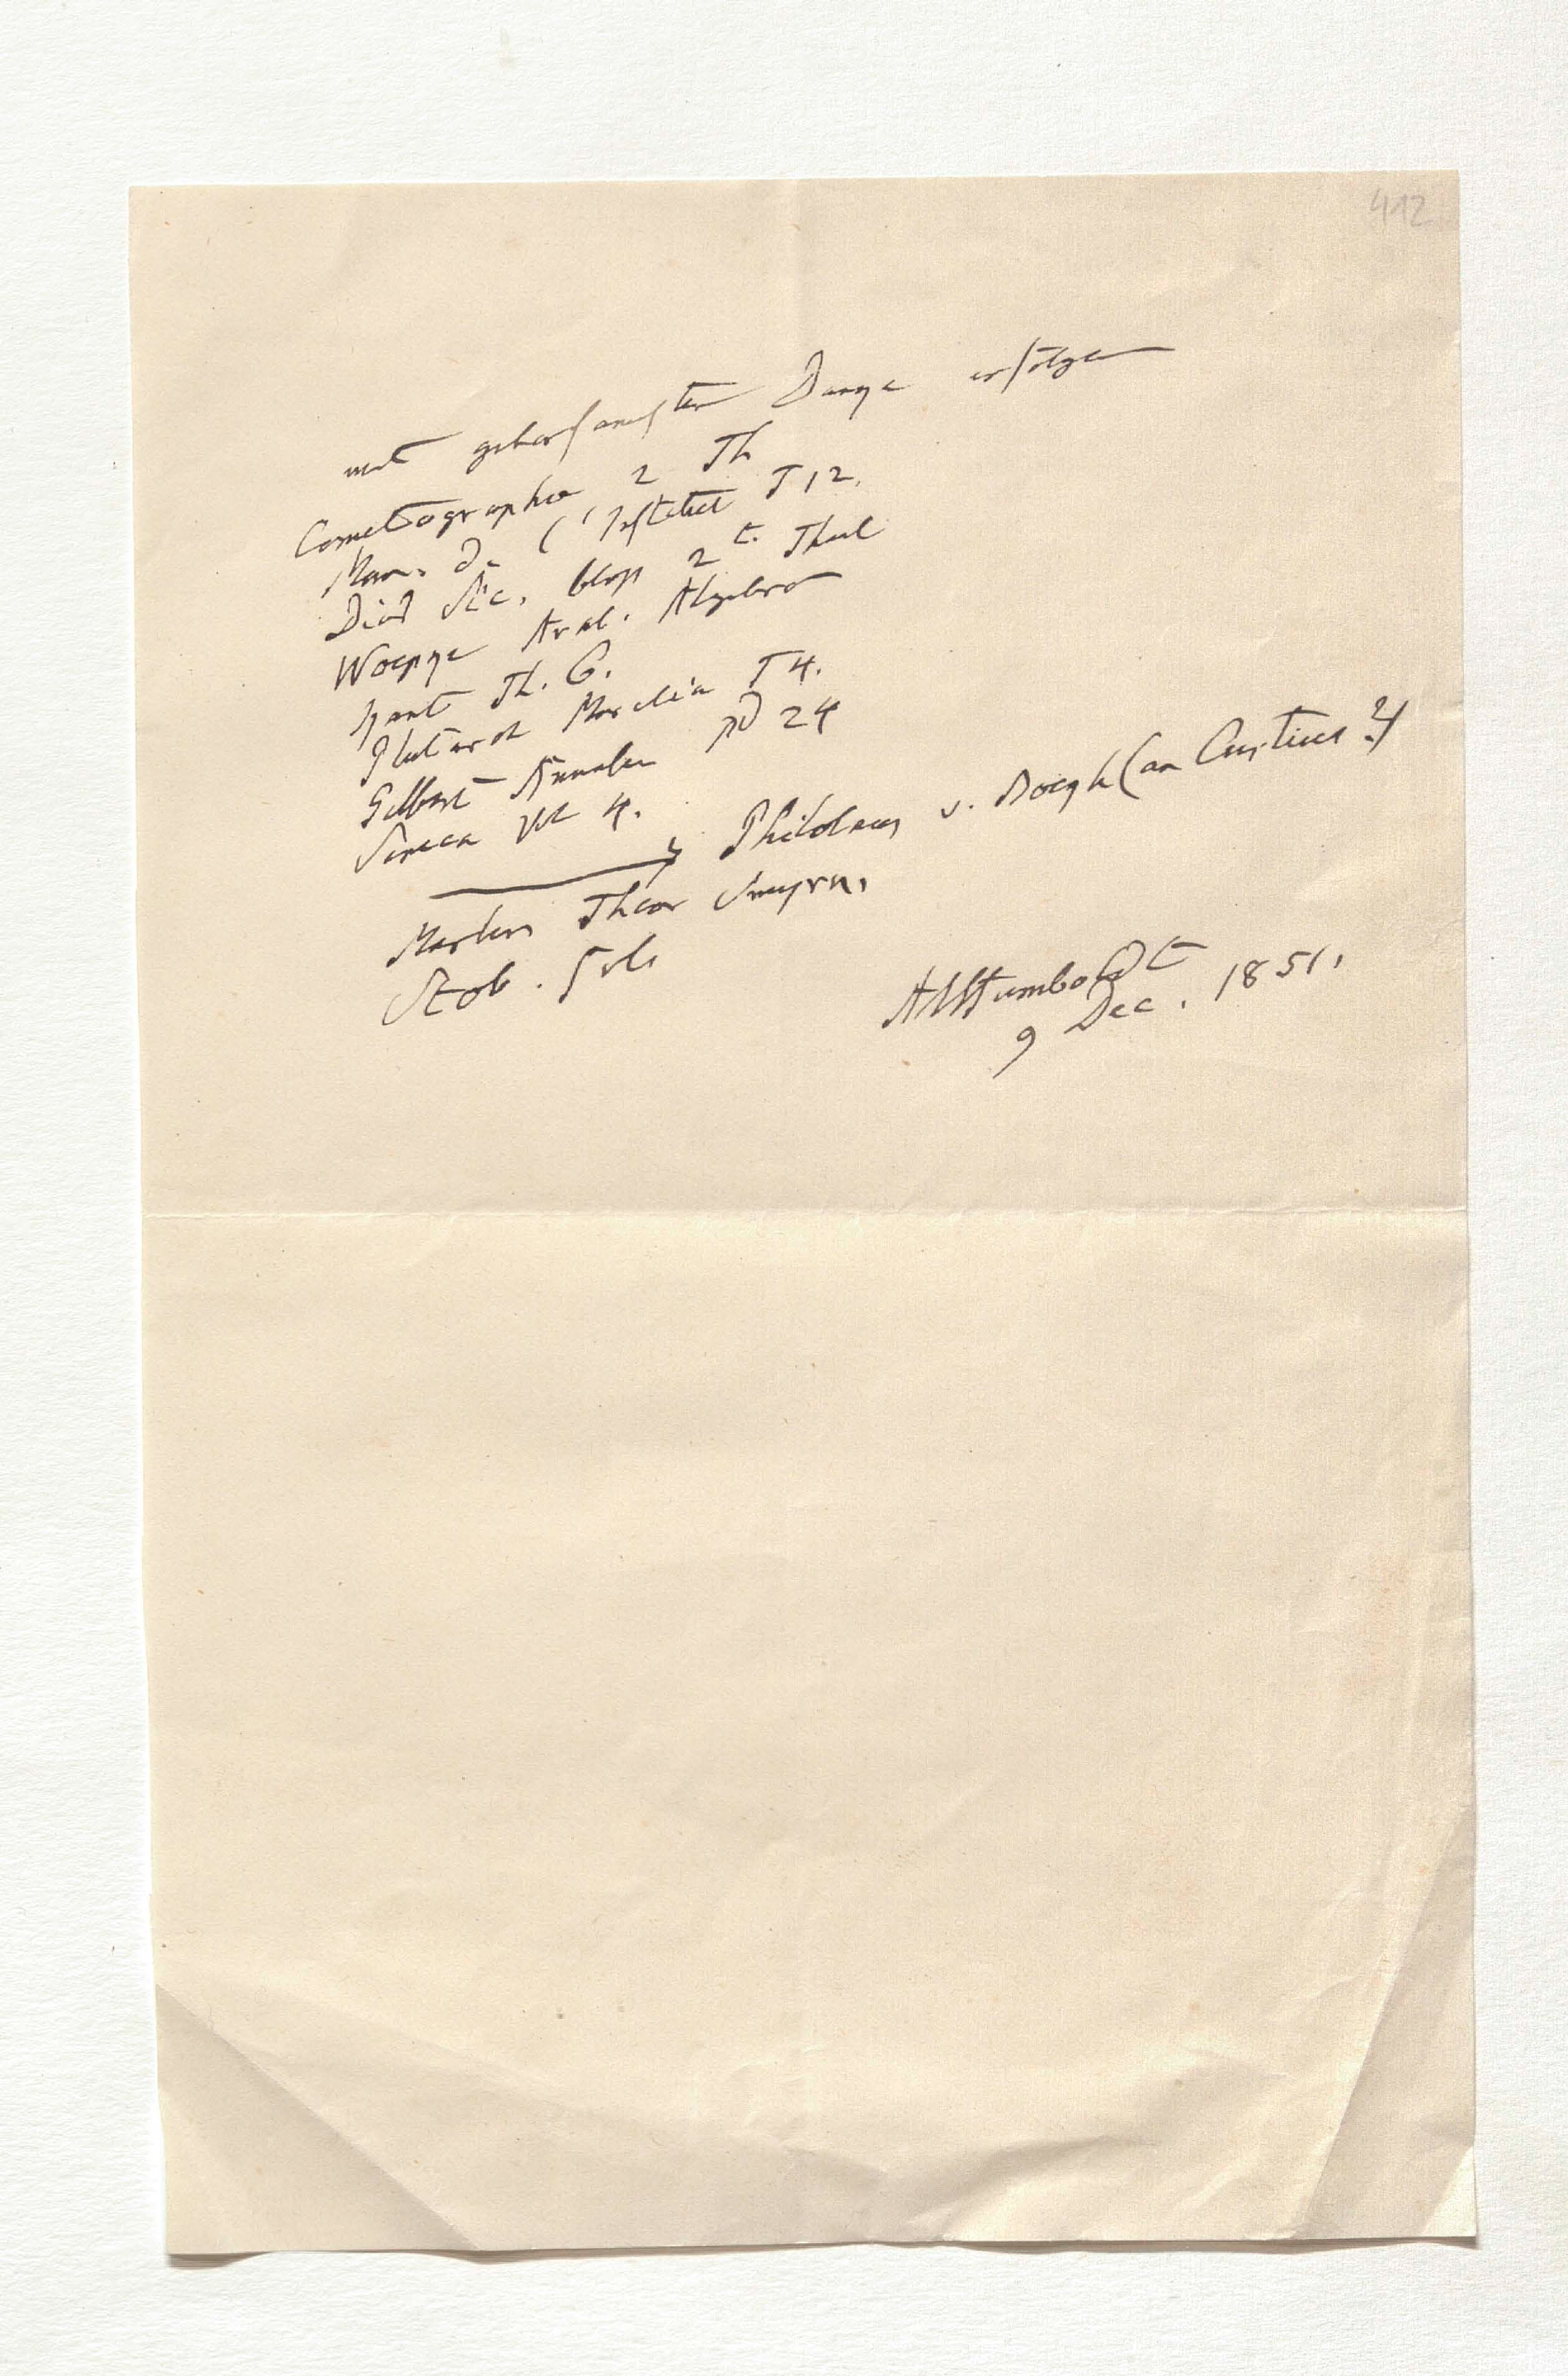 412
mit gehorsamsten Danke erfolgen
Cometographie 2 Th
Mem. de l'Institut T 12.
Diod Sic. 2t. Theil
Woepke Arab. Algebra
Kant Th. 6.
Plutarch Moralia T 4.
Gilbert Annalen Bd 24
Seneca Vol 4.
Philolaus v. Boeckh (an Curtius?)
Martin Theon Smyrn.
Stob. Ecl.
AlHumboldt
9 Dec. 1851.